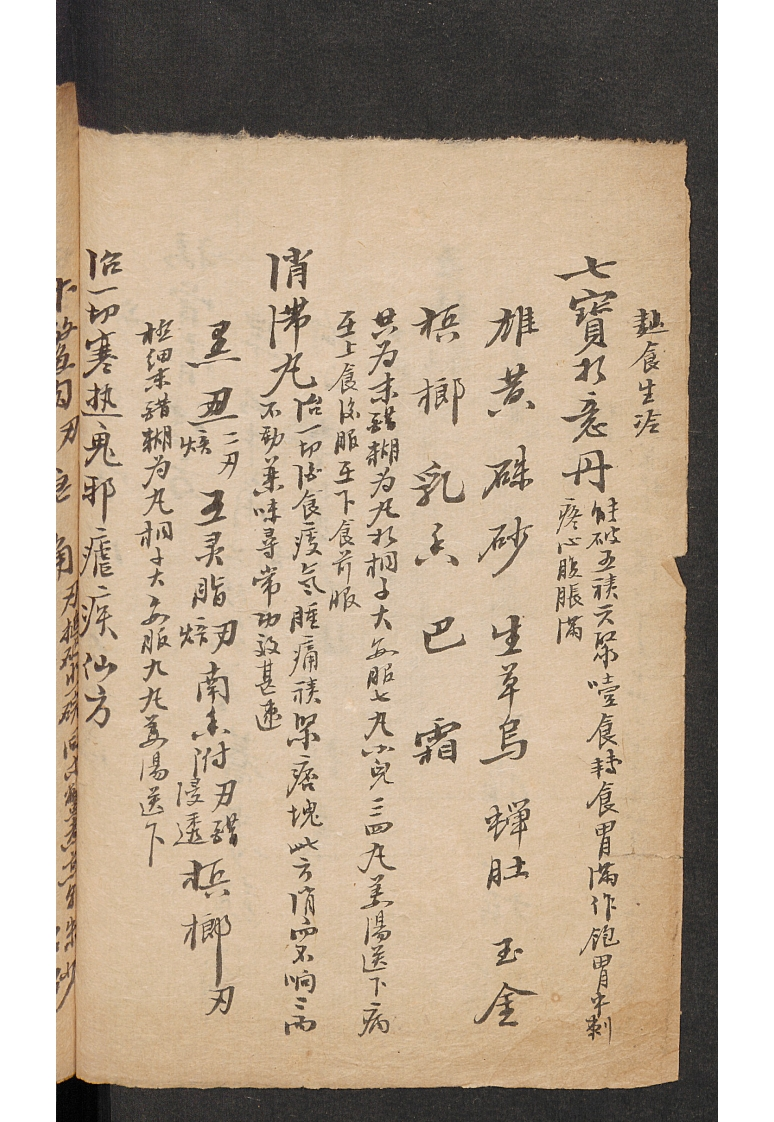 麫食生冷
七寶如意丹
能破五積六聚噎食轉食胃滿作飽胃中刺
疼心腹脹滿
雄黃 硃砂 生草烏 蟬肚 玉金
梹榔 乳香 巴霜
共為末醋糊為丸如桐子大每服七丸小兒三四丸姜湯送下病
至上食後服至下食前服
消滯丸
治一切酒食痰氣腫痛積聚痞塊此方消而不响
不動藥味尋常功效甚速
黑丑二刄焙 五灵脂刄焙 南香附刄醋浸透 梹榔刄
極細末醋糊為丸桐子大每服九丸姜湯送下
治一切寒热鬼邪瘧疾仙方